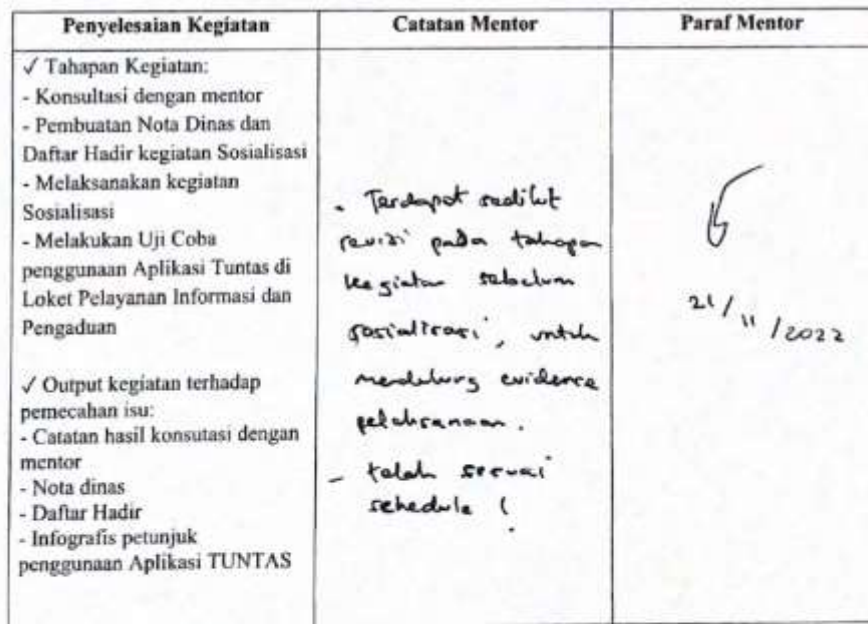 Penyelesaian Kegiatan
Catatan Mentor
Paraf Mentor
√ Tahapan Kegiatan:
- Konsultasi dengan mentor
- Pembuatan Nota Dinas dan
Daftar Hadir kegiatan Sosialisasi
- Melaksanakan kegiatan
Sosialisasi
- Melakukan Uji Coba
penggunaan Aplikasi Tuntas di
Loket Pelayanan Informasi dan
Pengaduan
√ Output kegiatan terhadap
pemecahan isu:
- Catatan hasil konsutasi dengan
mentor
- Nota dinas
- Daftar Hadir
- Infografis petunjuk
penggunaan Aplikasi TUNTAS
- Terdapat sedikit
revisi pada tahapan
kegiatan sebelum
sosialisasi, untuk
mendukung evidence
pelaksanaan.
- telah sesuai
schedule !
21/11/2022